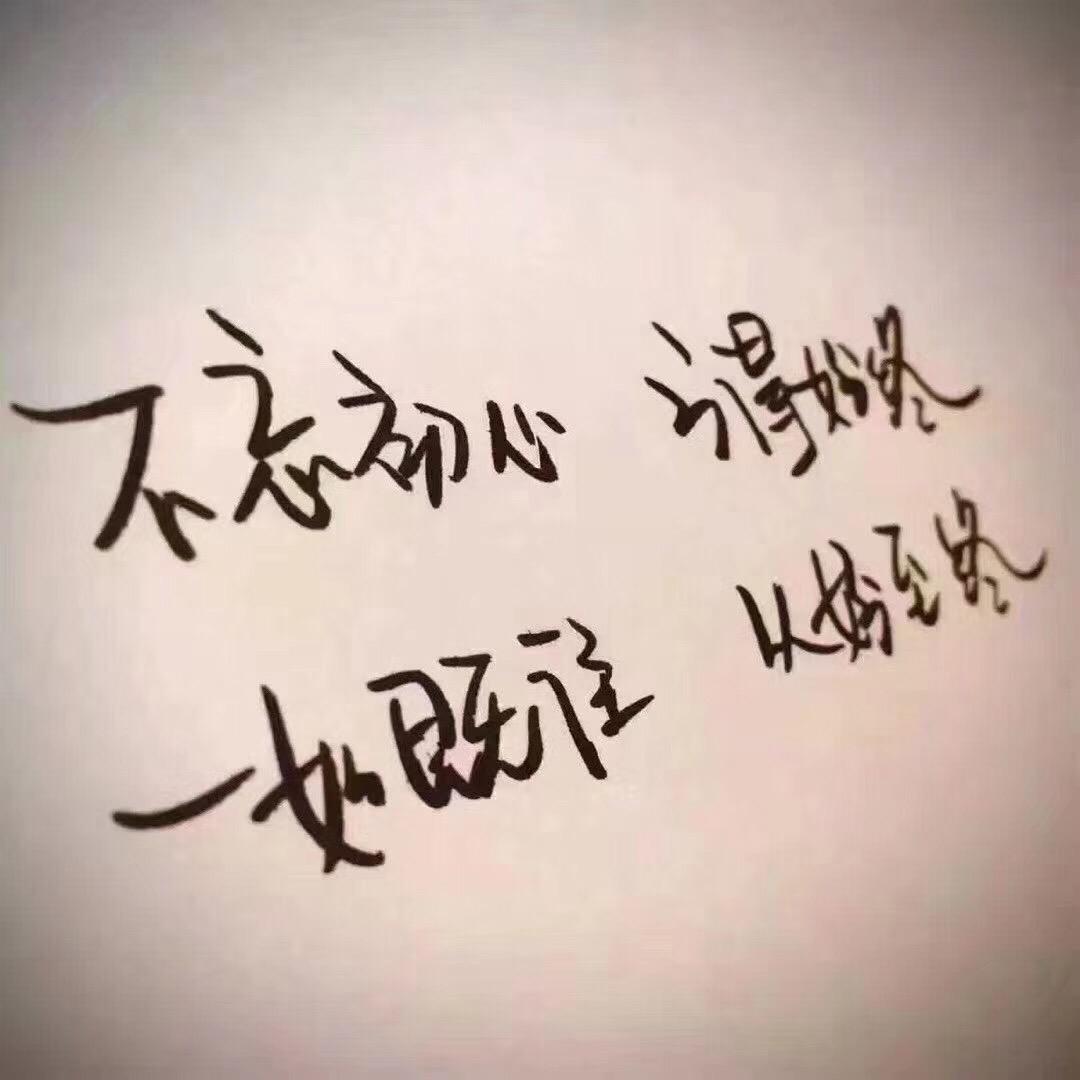 不忘初心 得始终
一如既往 从始至终